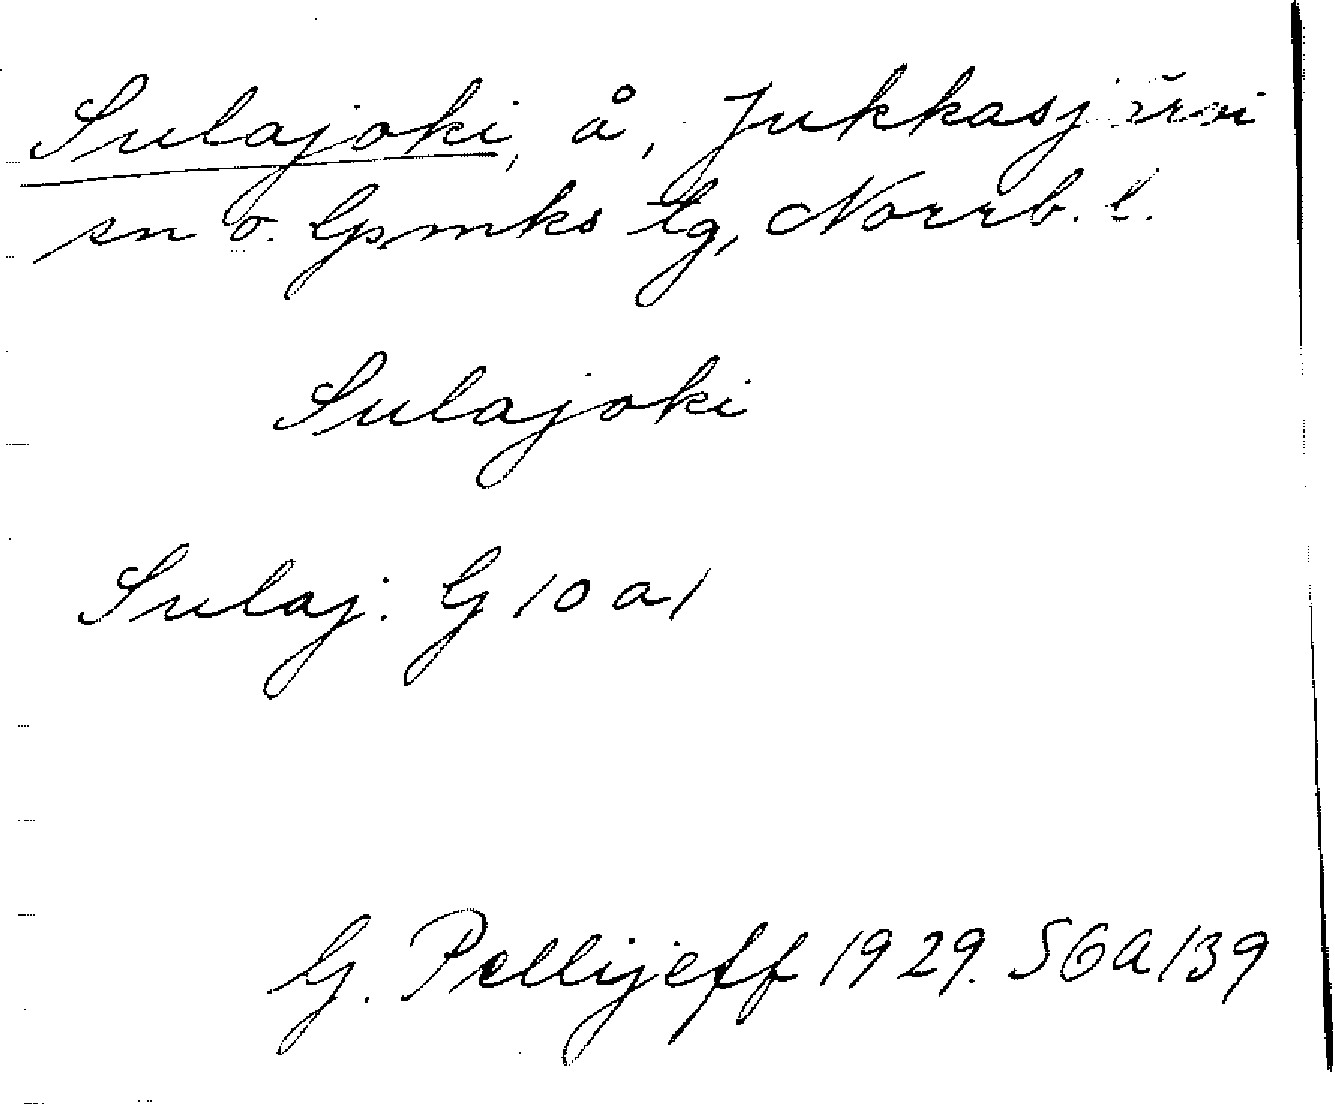 Sulajoki, å, Jukkasjärvi
sn o. lpmks tg, Norrb. l.
Sulajoki
Sulaj. G 10 a 1
G. Pellijeff 1929. SGA 139